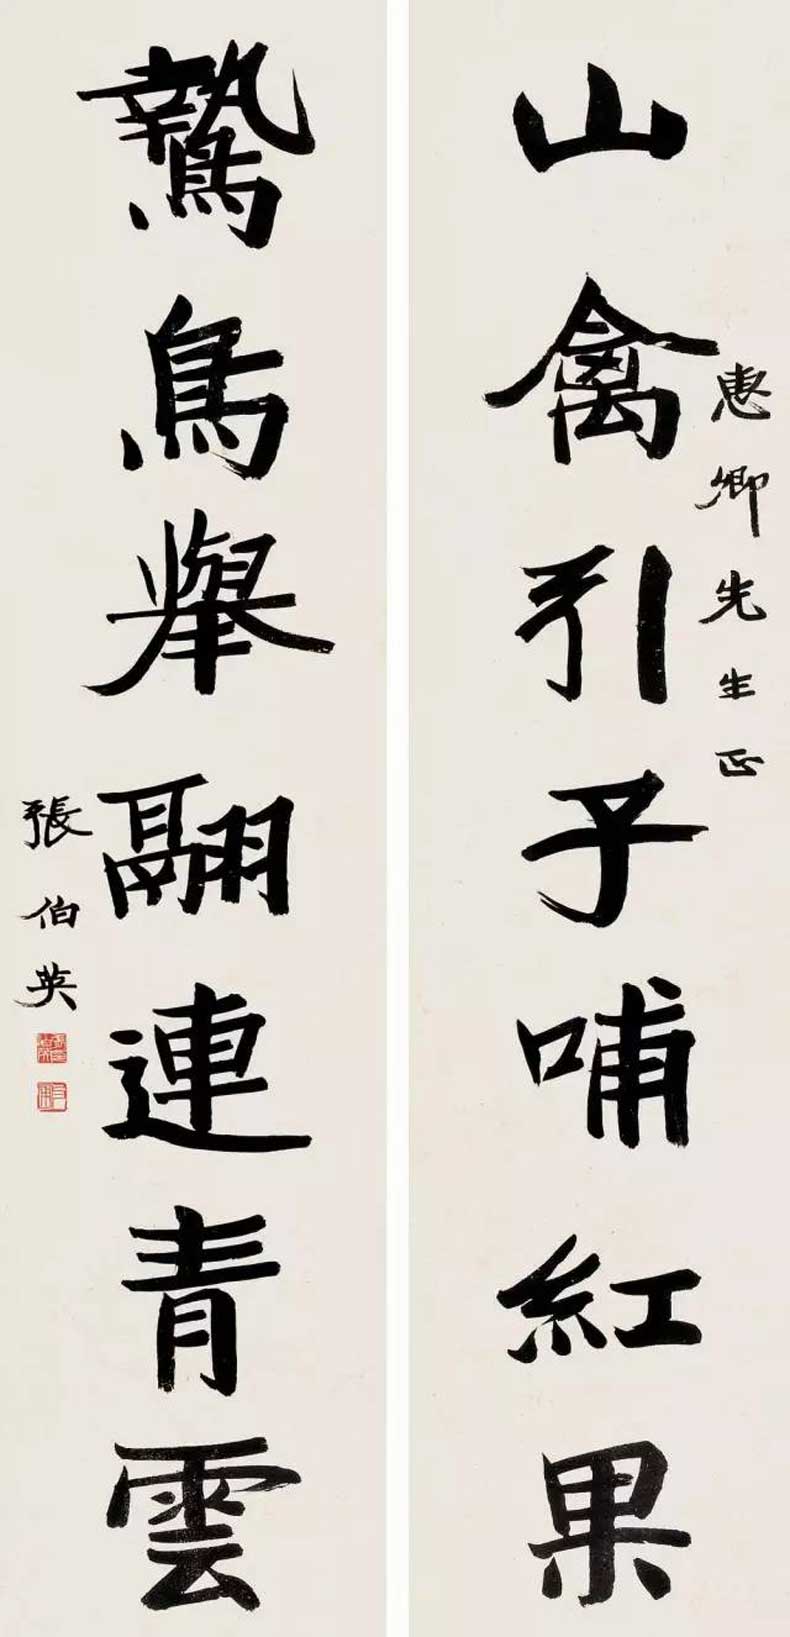 山禽引子哺紅果
惠卿先生正
鷙鳥舉翮連青雲
張伯英